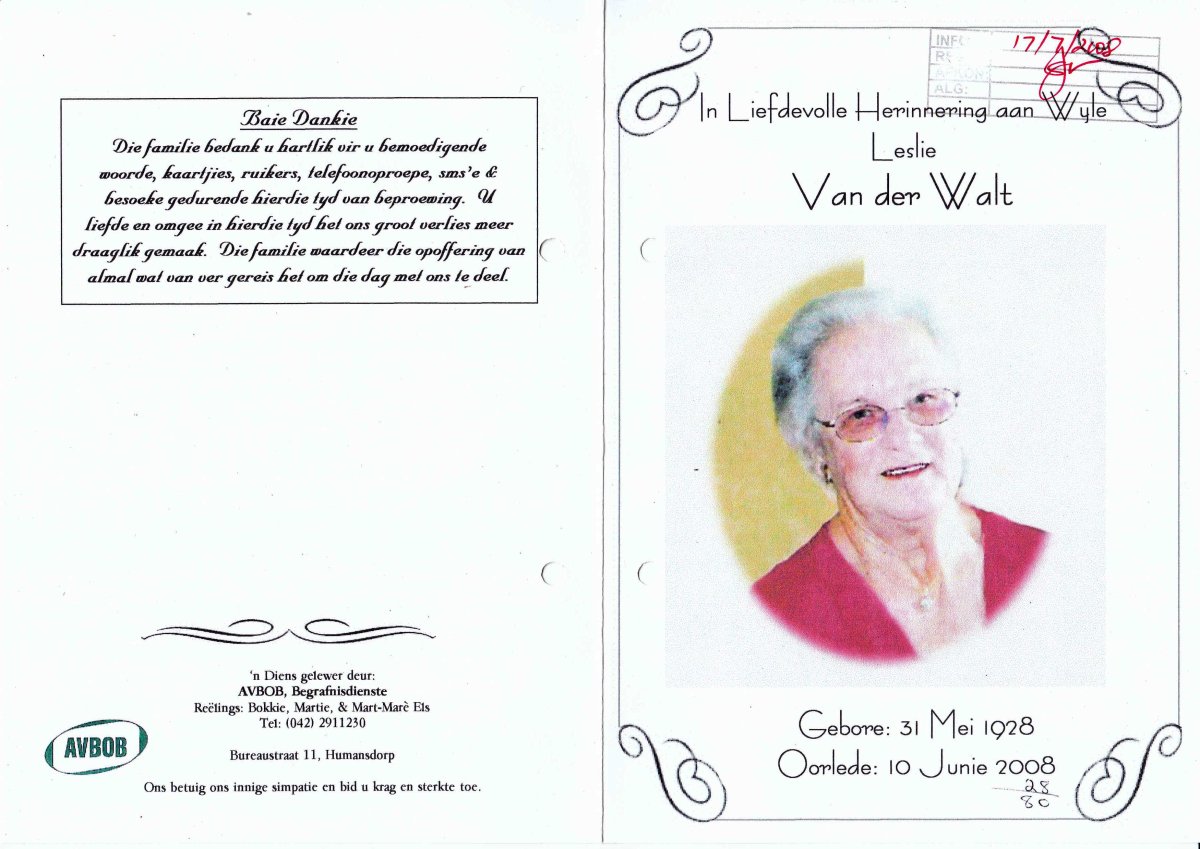 Baie Dankie
Die familie bedank u hartlik vir u bemoedigende
woorde, kaartjies, ruikers, telefoonoproepe, sms'e &
besoeke gedurende hierdie tyd van beproewing. U
liefde en omgee in hierdie tyd het ons groot verlies meer
draaglik gemaak. Die familie waardeer die opoffering van
almal wat van ver gereis het om die dag met ons te deel.
'n Diens gelewer deur:
AVBOB, Begrafnisdienste
Reëlings: Bokkie, Martie, & Mart-Marè Els
Tel: (042) 2911230
AVBOB
Bureaustraat 11, Humansdorp
Ons betuig ons innige simpatie en bid u krag en sterkte toe.
17/7/2008
ALG:
In Liefdevolle Herinnering aan Wyle
Leslie
Van der Walt
Gebore: 31 Mei 1928
Oorlede: 10 Junie 2008
28
80